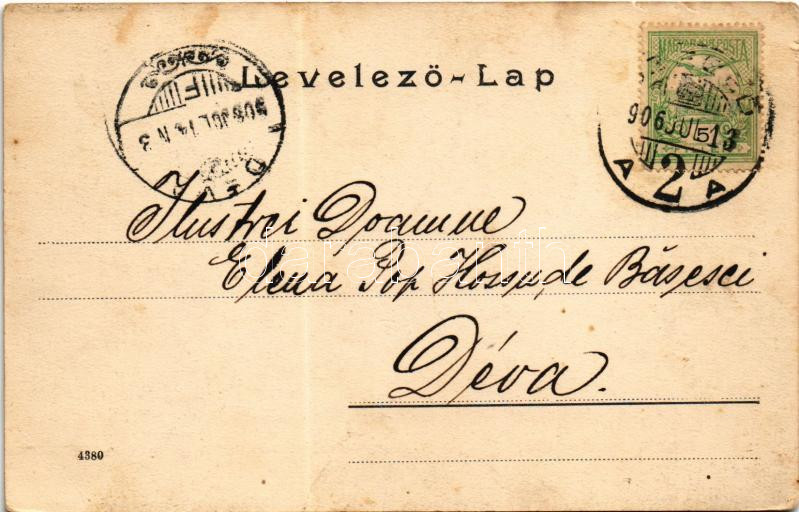 Levelező-Lap
MAGYAR POSTA
906 JUL 13
5
A 2 A
DÉVA
906 JUL 14 N 3
F
Ilustrei Doamne
Elena Pop Hossu de Băsesci
Déva.
4380
darabanth